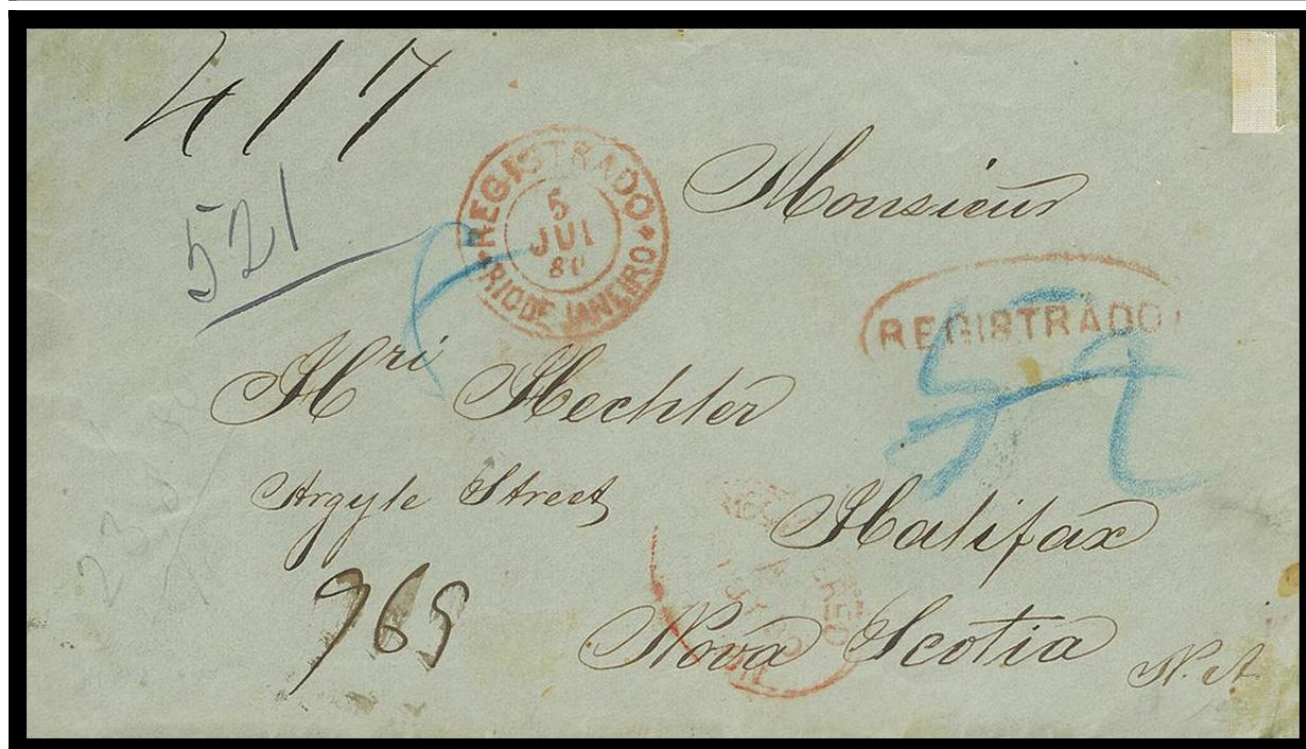 417
521
REGISTRADO
5
JUL
80
RIO DE JANEIRO
Monsieur
REGISTRADO
Hri Hechler
Argyle Street
Halifax
Nova Scotia N. A.
769